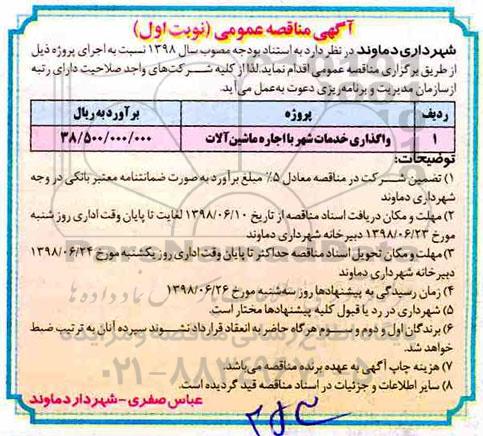 آگهی مناقصه عمومی (نوبت اول)
شهرداری دماوند در نظر دارد به استناد بودجه مصوب سال ۱۳۹۸ نسبت به اجرای پروژه ذیل
از طریق برگزاری مناقصه عمومی اقدام نماید.لذا از کلیه شرکت‌های واجد صلاحیت دارای رتبه
از سازمان مدیریت و برنامه‌ریزی دعوت به‌عمل می‌آید.
ردیف پروژه برآورد به ریال
۱ واگذاری خدمات شهر با اجاره ماشین‌آلات ۳۸/۵۰۰/۰۰۰/۰۰۰
توضیحات:
۱) تضمین شرکت در مناقصه معادل ۵% مبلغ برآورد به صورت ضمانتنامه معتبر بانکی در وجه
شهرداری دماوند
۲) مهلت و مکان دریافت اسناد مناقصه از تاریخ ۱۳۹۸/۰۶/۱۰ لغایت تا پایان وقت اداری روز شنبه
مورخ ۱۳۹۸/۰۶/۲۳ دبیرخانه شهرداری دماوند
۳) مهلت و مکان تحویل اسناد مناقصه حداکثر تا پایان وقت اداری روز یکشنبه مورخ ۱۳۹۸/۰۶/۲۴
دبیرخانه شهرداری دماوند
۴) زمان رسیدگی به پیشنهادها روز سه‌شنبه مورخ ۱۳۹۸/۰۶/۲۶
۵) شهرداری در رد یا قبول کلیه پیشنهادها مختار است.
۶) برندگان اول و دوم و سوم هرگاه حاضر به انعقاد قرارداد نشوند سپرده آنان به ترتیب ضبط
خواهد شد.
۷) هزینه چاپ آگهی به عهده برنده مناقصه می‌باشد.
۸) سایر اطلاعات و جزئیات در اسناد مناقصه قید گردیده است.
عباس صفری - شهردار دماوند